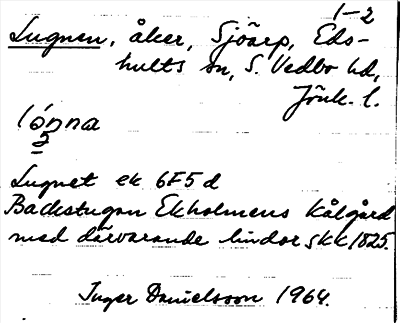 1-2
Lugnen, åker, Sjöarp, Eds-
hults sn, S. Vedbo hd,
Jönk. l.
lónna
2
Lugnet ek 6F5d
Backstugan Ekholmens kålgård
med därvarande lindor skk 1825.
Inger Danielsson 1964.